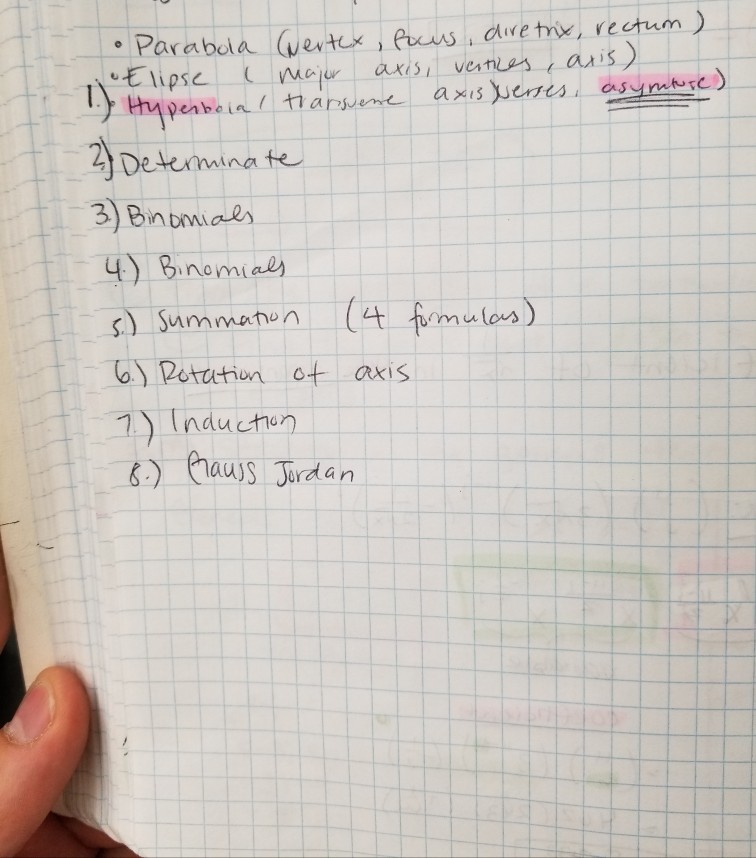 • Parabola (vertex, focus, diretrix, rectum)
• Elipse ( major axis, vertices, axis)
1.) • Hyperbola ( transverse axis) verses, asymtote)
2) Determinate
3.) Binomials
4.) Binomials
5.) Summation (4 formulas)
6.) Rotation of axis
7.) Induction
8.) Gauss Jordan